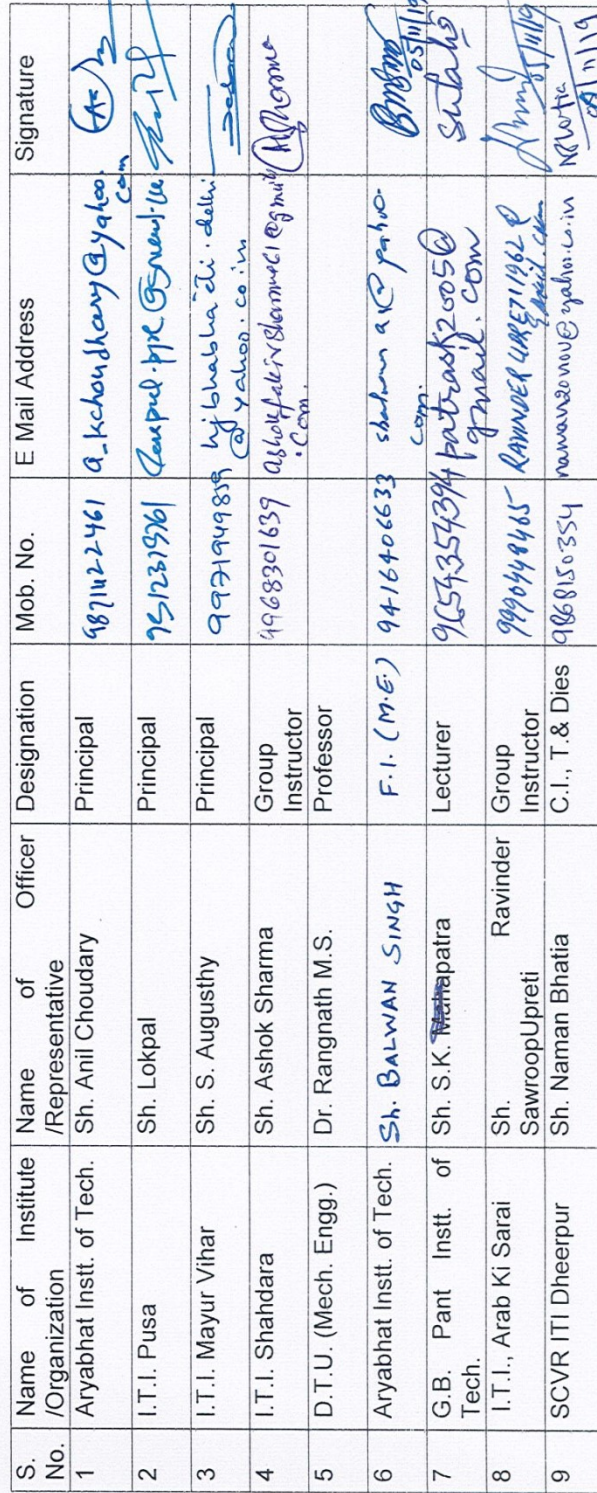 S. No. Name of Institute /Organization Name of Officer /Representative Designation Mob. No. E Mail Address Signature
1 Aryabhat Instt. of Tech. Sh. Anil Choudary Principal 9871422461 a_kchoudhary@yahoo.com
2 I.T.I. Pusa Sh. Lokpal Principal
3 I.T.I. Mayur Vihar Sh. S. Augusthy Principal 9971949859 hjbhabhaiti.delhi@yahoo.co.in
4 I.T.I. Shahdara Sh. Ashok Sharma Group Instructor 9968301639
5 D.T.U. (Mech. Engg.) Dr. Rangnath M.S. Professor
6 Aryabhat Instt. of Tech. Sh. BALWAN SINGH F.I. (M.E.) 9416406633 05/11/19
7 G.B. Pant Instt. of Tech. Sh. S.K. apatra Lecturer 9654354394 patrask2005@gmail.com
8 I.T.I., Arab Ki Sarai Sh. Ravinder SawroopUpreti Group Instructor 9990448465 05/11/19
9 SCVR ITI Dheerpur Sh. Naman Bhatia C.I., T.& Dies 9868150354 naman20nov@yahoo.co.in